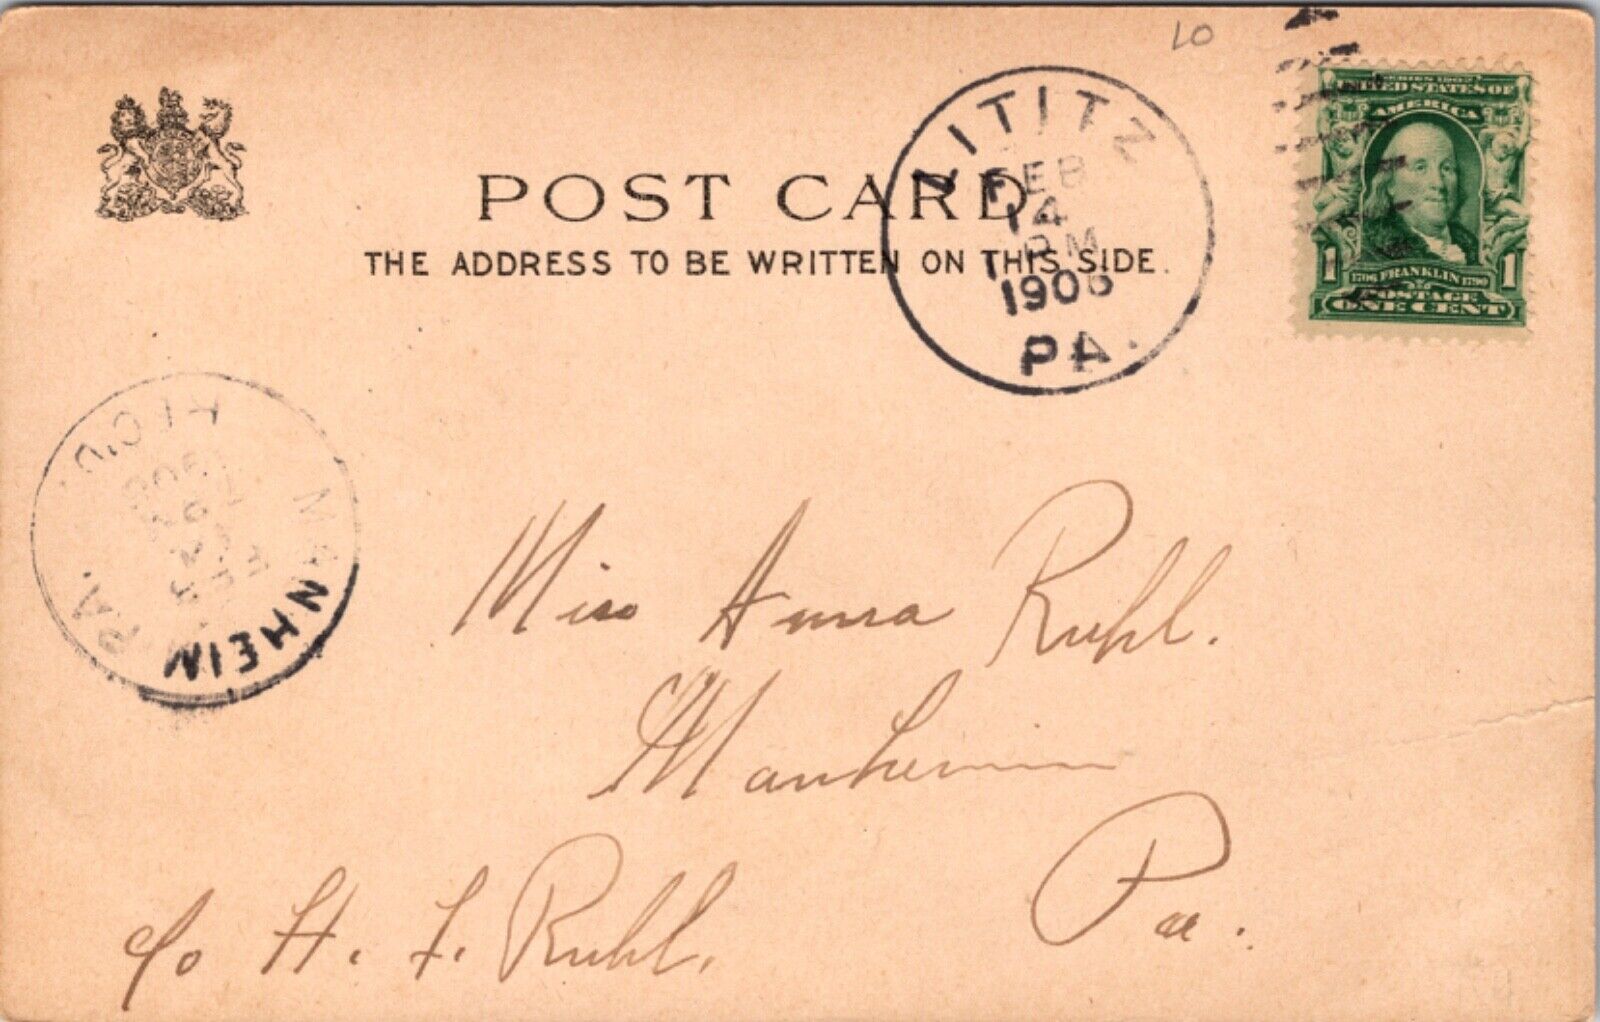 10
SERIES 1902
UNITED STATES OF
AMERICA
1 1706 FRANKLIN 1790 1
POSTAGE
ONE CENT
LITITZ
FEB
14
PM
1906
PA.
POST CARD
THE ADDRESS TO BE WRITTEN ON THIS SIDE.
MANHEIM PA.
REC'D.
FEB
Miss Anna Ruhl.
Manheim
Pa.
c/o H. F. Ruhl.